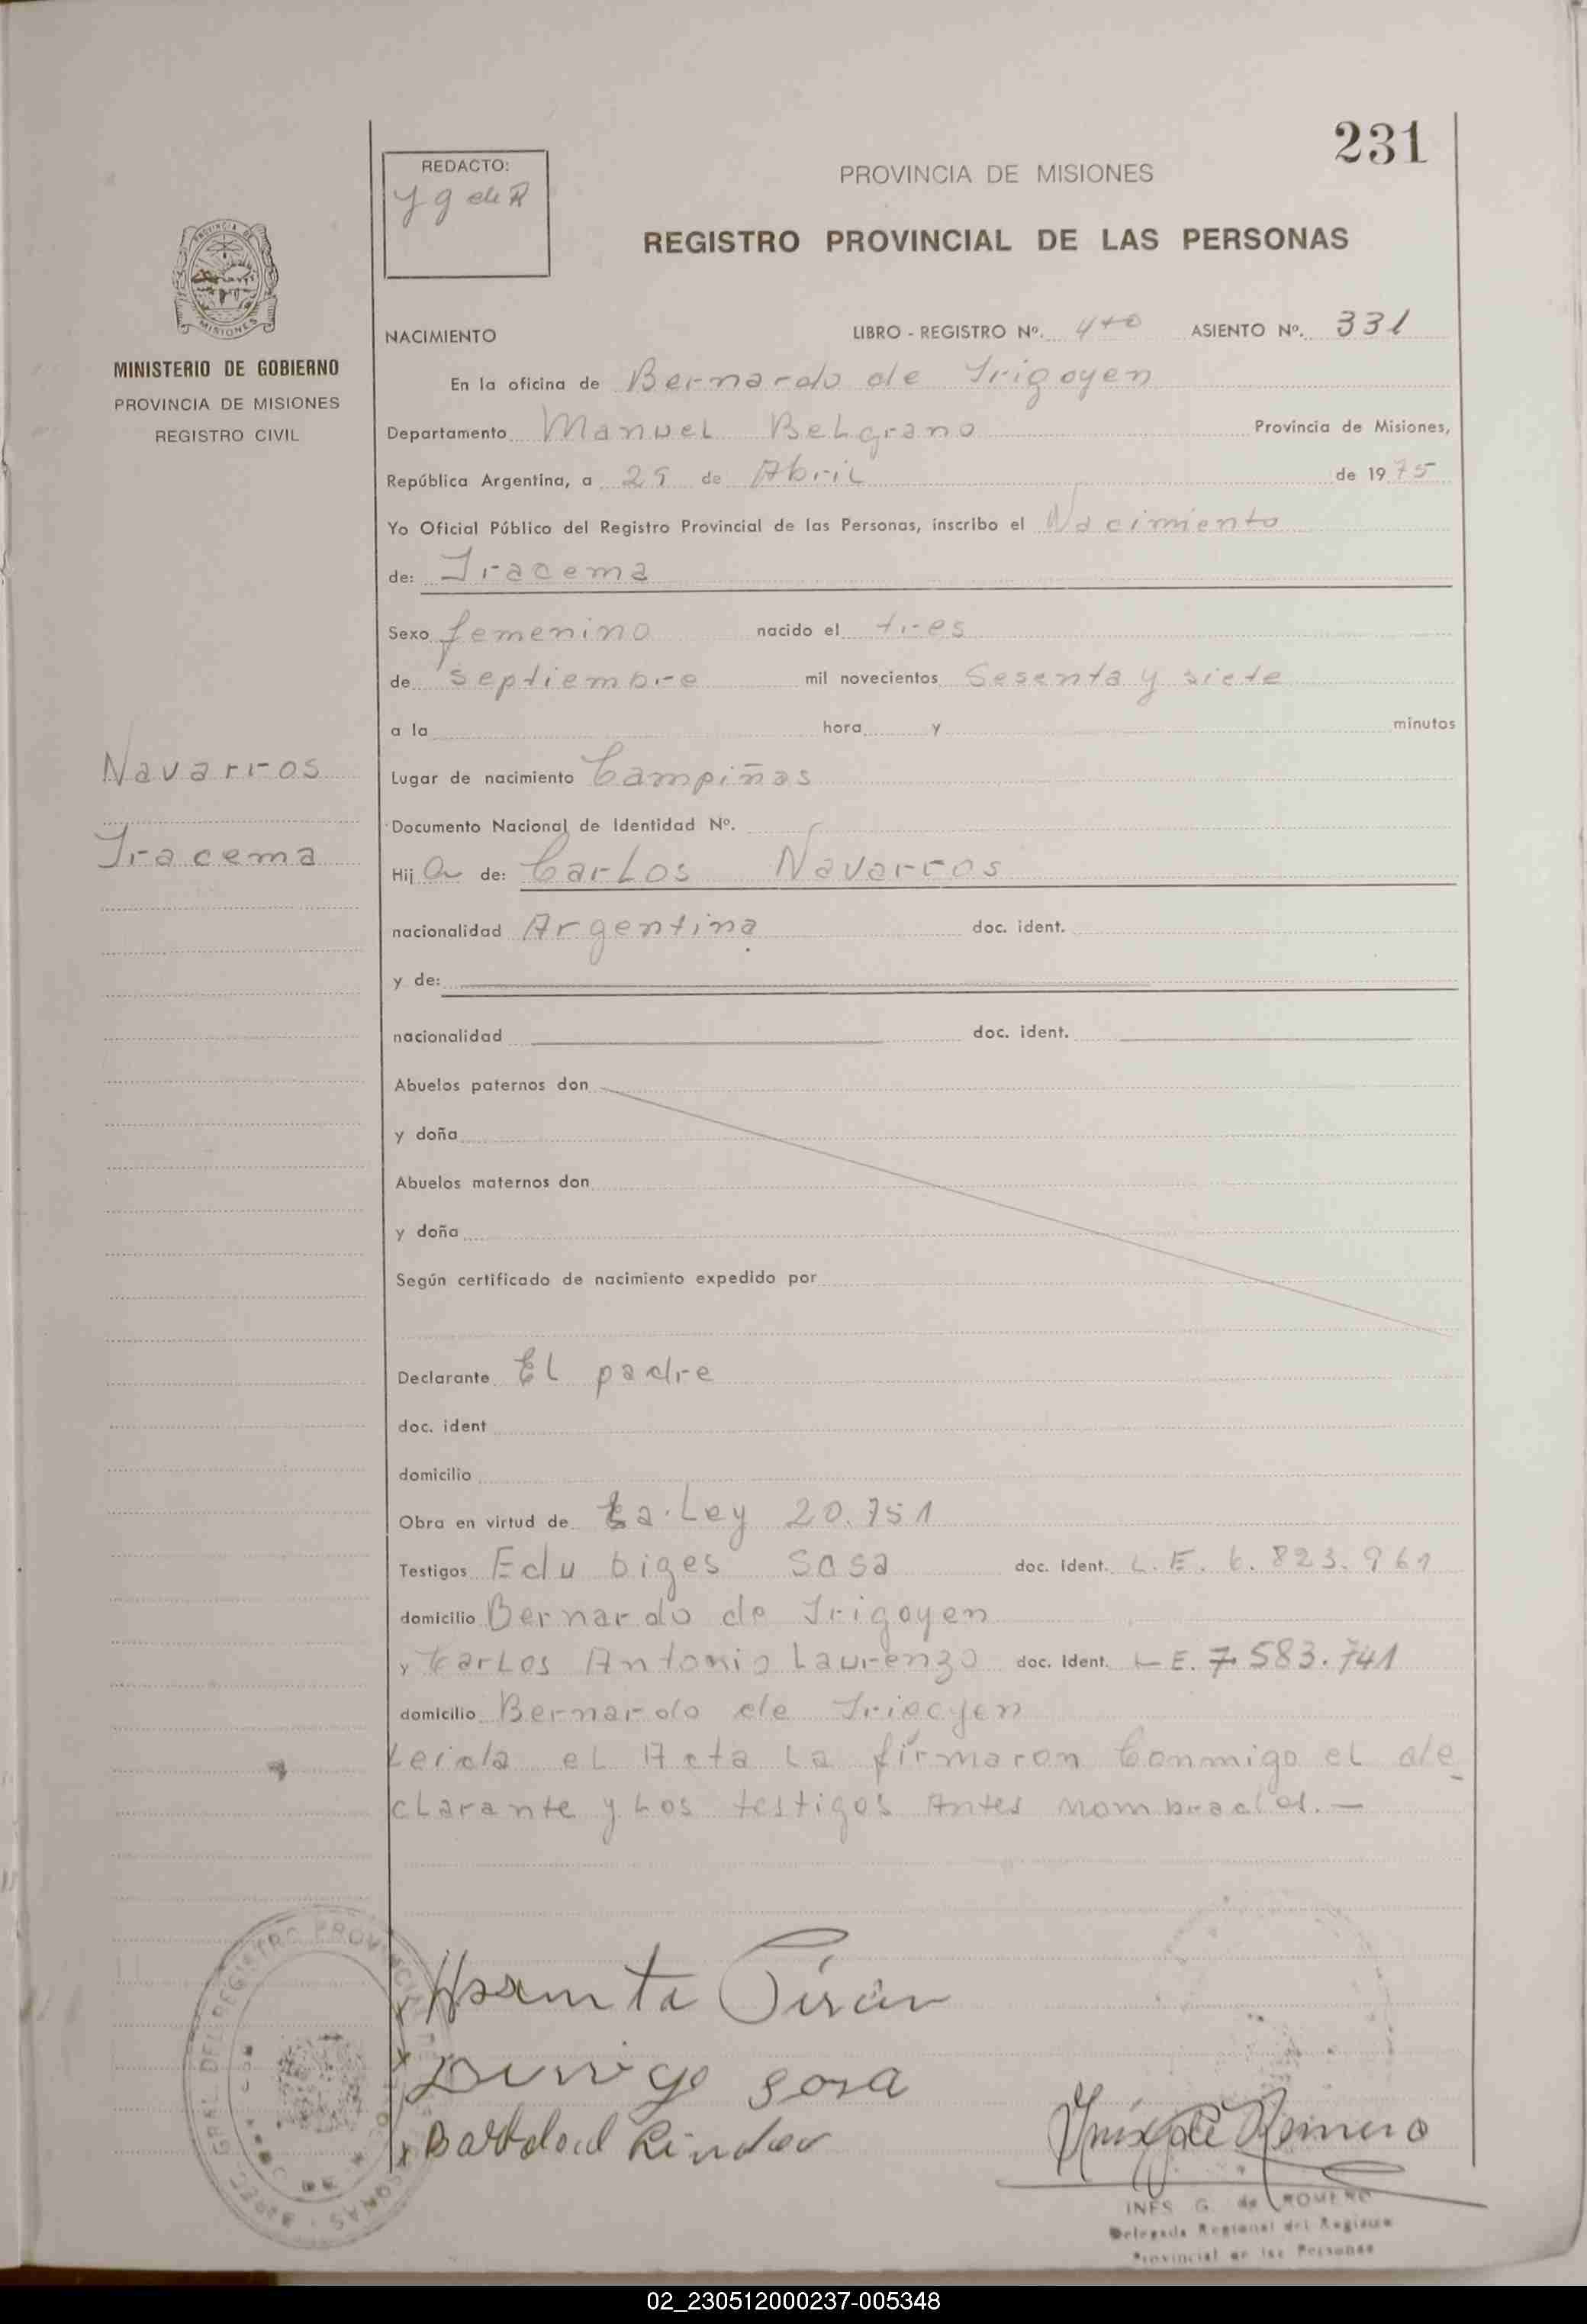 231
REDACTO:
PROVINCIA DE MISIONES
REGISTRO PROVINCIAL DE LAS PERSONAS
MISIONES
MINISTERIO DE GOBIERNO
PROVINCIA DE MISIONES
REGISTRO CIVIL
NACIMIENTO LIBRO - REGISTRO Nº. ASIENTO Nº. 331
En la oficina de Bernardo de Irigoyen
Departamento Manuel Belgrano Provincia de Misiones,
República Argentina, a 29 de Abril de 1975
Yo Oficial Público del Registro Provincial de las Personas, inscribo el Nacimiento
de: Iracema
Sexo femenino nacido el tres
de septiembre mil novecientos Sesenta y siete
a la hora y minutos
Navarros
Lugar de nacimiento Campiñas
Documento Nacional de Identidad Nº.
Iracema
Hij a de: Carlos Navarros
nacionalidad Argentina doc. ident.
y de:
nacionalidad doc. ident.
Abuelos paternos don
y doña
Abuelos maternos don
y doña
Según certificado de nacimiento expedido por
Declarante El padre
doc. ident
domicilio
Obra en virtud de La Ley 20.751
Testigos Edu biges Sosa doc. Ident. L.E. 6.823.961
domicilio Bernardo de Irigoyen
y Carlos Antonio Laurenzo doc. Ident. L E. 7.583.741
domicilio Bernardo de
Leida el Acta la firmaron Conmigo el de
clarante y Los testigos Antes nombrados.—
INES G. de ROMERO
Delegada Regional del Registro
Provincial de las Personas
02_230512000237-005348